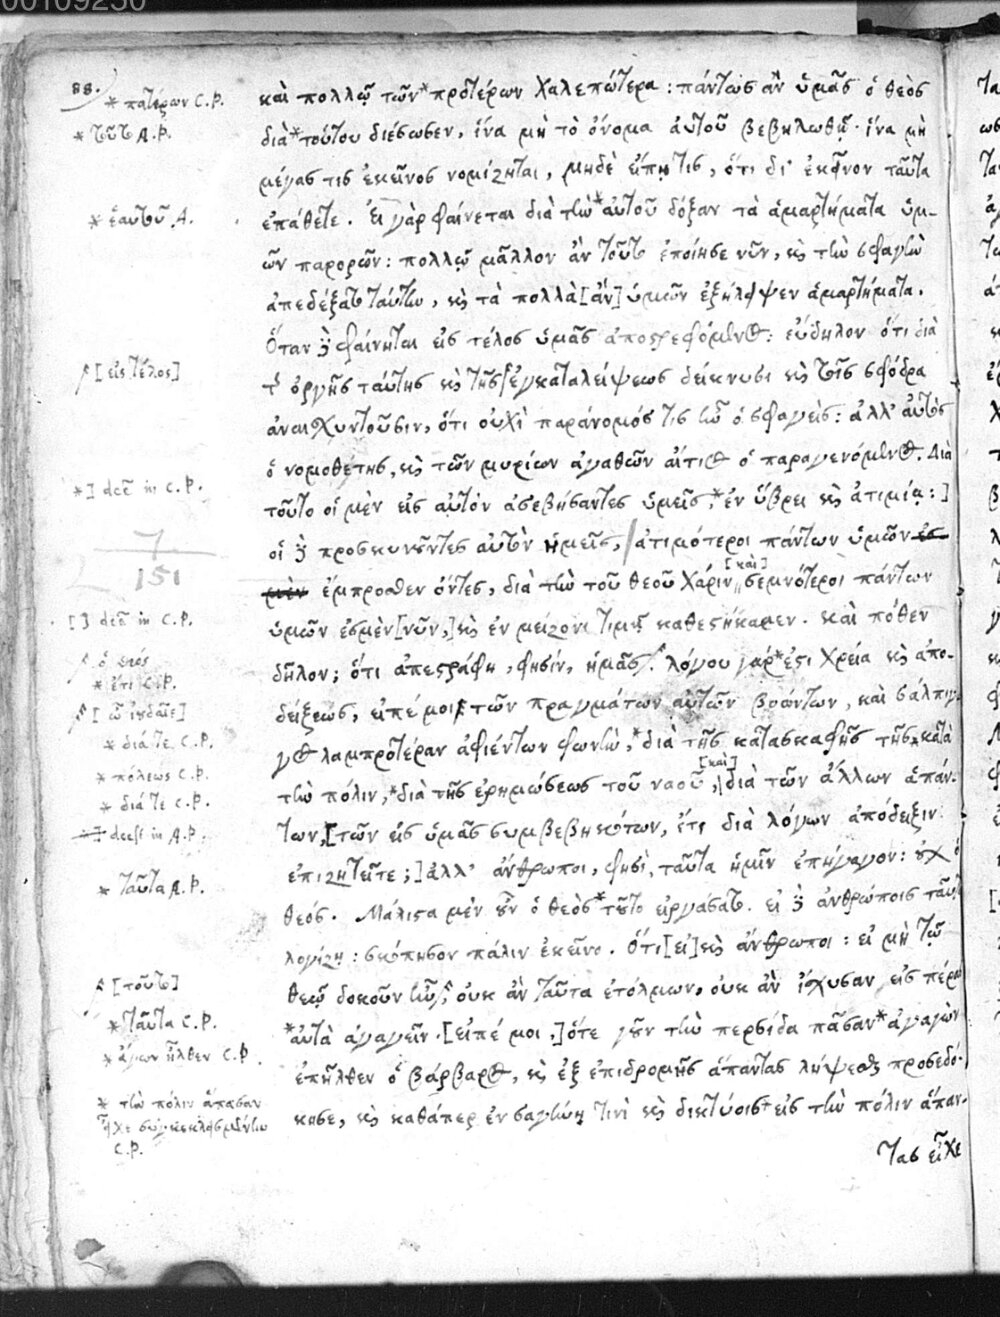 00109250
88.
* πατέρων C.P.
* τοῦτο A.P.
* ἑαυτοῦ A.
[εἰς τέλος]
*] dee̅ in C.P.
7
151
[ ] dee̅ in C.P.
ὁ θεός
* ἔτι C.P.
[ὦ ἰουδαῖε]
* διά τε C.P.
* πόλεως C.P.
* διά τε C.P.
deest in A.P.
* ταῦτα A.P.
[τοῦτο]
* ταῦτα C.P.
* ἄγων ἦλθεν C.P.
* τὴν πόλιν ἅπασαν
εἶχε συγκεκλεισμένην
C.P.
καὶ πολλῷ τῶν* προτέρων χαλεπώτερα : πάντως ἂν ὑμᾶς ὁ θεὸς
διὰ* τούτου διέσωσεν, ἵνα μὴ τὸ ὄνομα αὐτοῦ βεβηλωθῇ· ἵνα μὴ
μέγας τις ἐκεῖνος νομίζηται, μηδὲ εἴπῃ τις, ὅτι δι' ἐκεῖνον ταῦτα
ἐπάθετε. Εἰ γὰρ φαίνεται διὰ τὴν* αὐτοῦ δόξαν τὰ ἁμαρτήματα ὑμ-
ῶν παρορῶν : πολλῷ μᾶλλον ἂν τοῦτο ἐποίησε νῦν, καὶ τὴν σφαγὴν
ἀπεδέξατο ταύτην, καὶ τὰ πολλὰ [ἂν] ὑμῶν ἐξήλειψεν ἁμαρτήματα.
Ὅταν δὲ φαίνηται εἰς τέλος ὑμᾶς ἀποστρεφόμενος : εὔδηλον ὅτι διὰ
τῆς ὀργῆς ταύτης καὶ τῆς ἐγκαταλείψεως δείκνυσι καὶ τοῖς σφόδρα
ἀναισχυντοῦσιν, ὅτι οὐχὶ παράνομός τις ἦν ὁ σφαγεὶς : ἀλλ' αὐτὸς
ὁ νομοθέτης, καὶ τῶν μυρίων ἀγαθῶν αἴτιος ὁ παραγενόμενος. Διὰ
τοῦτο οἱ μὲν εἰς αὐτὸν ἀσεβήσαντες ὑμεῖς,* ἐν ὕβρει καὶ ἀτιμίᾳ : ]
οἱ δὲ προσκυνοῦντες αὐτὸν ἡμεῖς, ἀτιμότεροι πάντων ὑμῶν
ἔμπροσθεν ὄντες, διὰ τὴν τοῦ θεοῦ χάριν [καὶ] σεμνότεροι πάντων
ὑμῶν ἐσμὲν [νῦν,] καὶ ἐν μείζονι τιμῇ καθεστήκαμεν. καὶ πόθεν
δῆλον; ὅτι ἀπεστράφη, φησίν, ἡμᾶς. λόγου γάρ* ἐστι χρεία καὶ ἀπο-
δείξεως, εἰπέ μοι τῶν πραγμάτων αὐτῶν βοώντων, καὶ σάλπιγ-
γος λαμπροτέραν ἀφιέντων φωνὴν,* διὰ τῆς κατασκαφῆς τῆς* κατὰ
τὴν πόλιν,* διὰ τῆς ἐρημώσεως τοῦ ναοῦ, [καὶ] διὰ τῶν ἄλλων ἁπάν-
των, [τῶν εἰς ὑμᾶς συμβεβηκότων, ἔτι διὰ λόγων ἀπόδειξιν
ἐπιζητεῖτε; ] ἀλλ' ἄνθρωποι, φησὶ, ταῦτα ἡμῖν ἐπήγαγον : οὐχ ὁ
θεός. Μάλιστα μὲν οὖν ὁ θεὸς* τοῦτο εἰργάσατο. εἰ δὲ ἀνθρώποις ταῦτα
λογίζῃ : σκόπησον πάλιν ἐκεῖνο. Ὅτι [εἰ] καὶ ἄνθρωποι : εἰ μὴ τῷ
θεῷ δοκοῦν ἦν, οὐκ ἂν ταῦτα ἐτόλμων, οὐκ ἂν ἴσχυσαν εἰς πέρας
* αὐτὰ ἀγαγεῖν. [εἰπέ μοι,] ὅτε γοῦν τὴν περσίδα πᾶσαν* ἀγαγὼν
ἐπῆλθεν ὁ βάρβαρος, καὶ ἐξ ἐπιδρομῆς ἅπαντας λήψεσθαι προσεδό-
κησε, καὶ καθάπερ ἐν σαγήνῃ τινὶ καὶ δικτύοις* εἰς τὴν πόλιν ἅπαν-
τας εἶχε